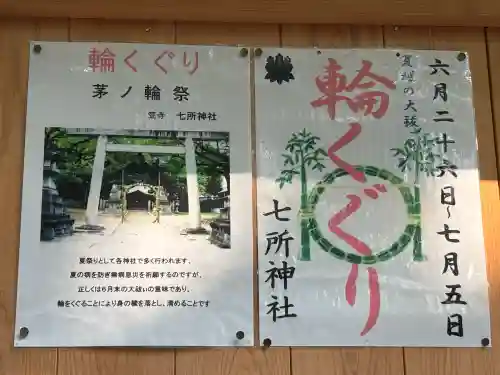 輪くぐり
茅ノ輪祭
七所神社
夏祭りとして各神社で多く行われます、
夏の病を防ぎ無病息災を祈願するのですが、
正しくは6月末の大祓いの意味であり、
輪をくぐることにより身の穢を落とし、清めることです
六月二十六日〜七月五日
夏越の大祓
輪くぐり
七所神社